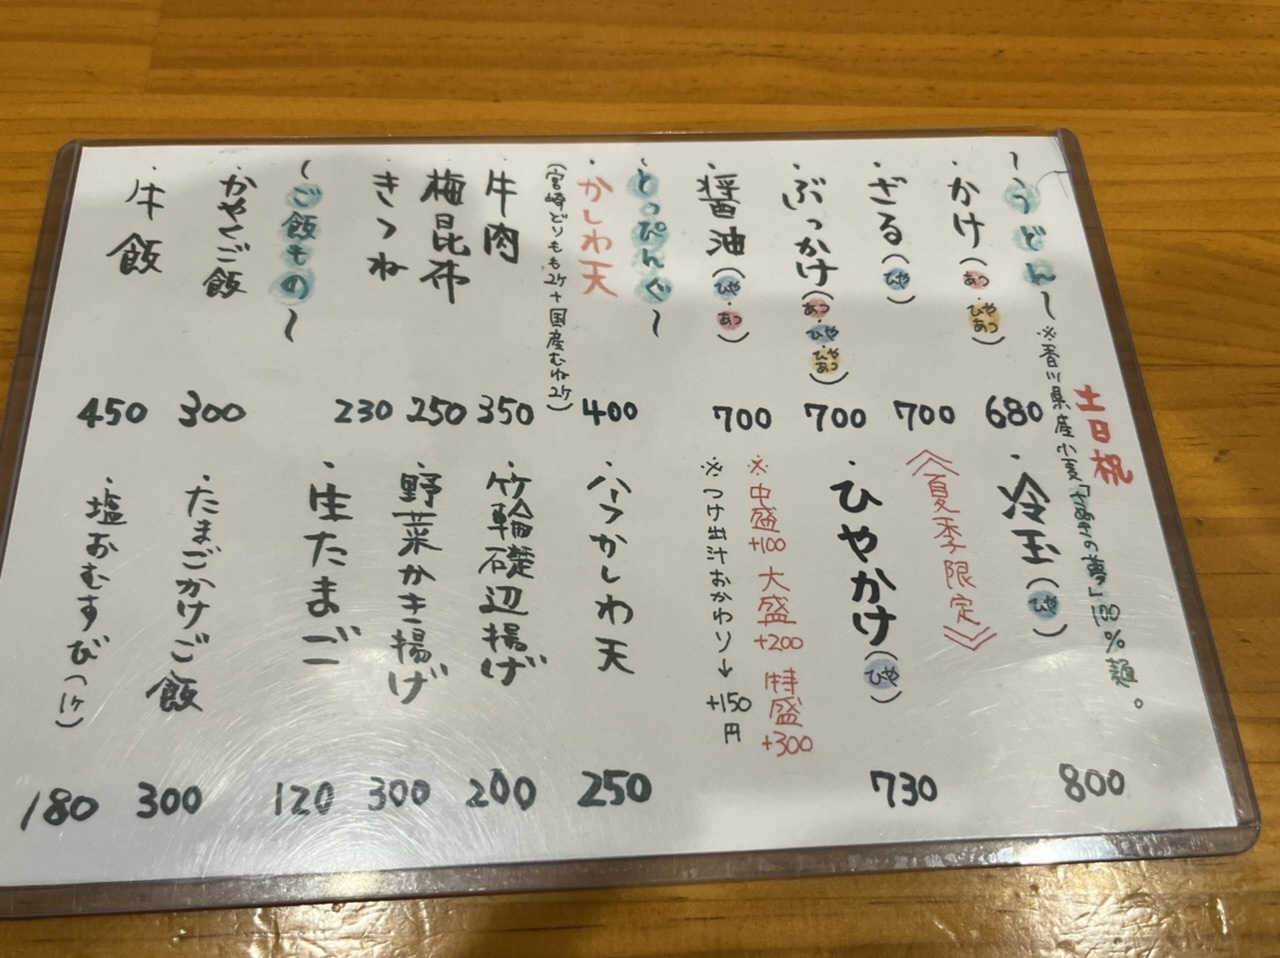 〜うどん〜
※香川県産小麦「さぬきの夢」100%麺。
土日祝
・かけ(あつ・ひやあつ) 680
・ざる(ひや) 700
・ぶっかけ(あつ・ひや・ひやあつ) 700
・醤油(ひや・あつ) 700
・冷玉(ひや) 800
《夏季限定》
・ひやかけ(ひや) 730
※中盛+100 大盛+200 特盛+300
※つけ出汁おかわり→+150円
〜とっぴんぐ〜
・かしわ天 400
(宮崎どりもも2ケ+国産むね2ケ)
・牛肉 350
・梅昆布 250
・きつね 230
・ハーフかしわ天 250
・竹輪礎辺揚げ 200
・野菜かき揚げ 300
・生たまご 120
〜ご飯もの〜
・かやくご飯 300
・牛飯 450
・たまごかけご飯 300
・塩おむすび(1ケ) 180